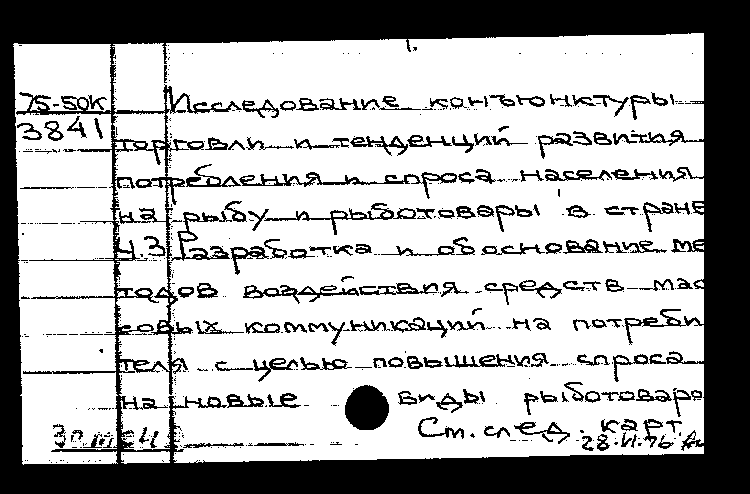 1.
75-50к Исследование конъюнктуры
3841 торговли и тенденций развития
потребления и спроса населения
на рыбу и рыботовары в стране
ч.3 Разработка и обоснование ме
тодов воздействия средств мас
совых коммуникаций на потреби
теля с целью повышения спроса
на новые виды рыботоваро
См. след. карт.
28.VI.76